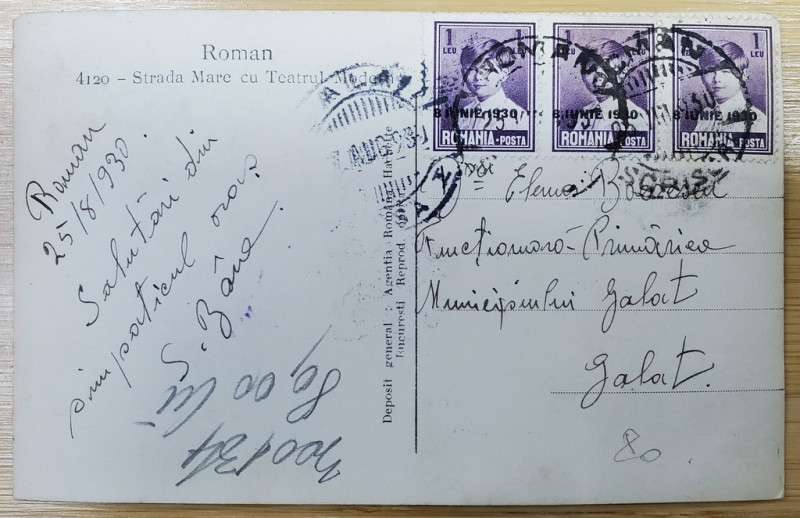 Roman
4120 – Strada Mare cu Teatrul Modern
1 LEU
8 IUNIE 1930
ROMANIA-POSTA
1 LEU
8 IUNIE 1930
ROMANIA-POSTA
1 LEU
8 IUNIE 1930
ROMANIA-POSTA
ROMAN
AUG 930
Roman
25/8/930.
Salutări din
simpaticul oraș
S. Bâne.
Deposit general: Agentia Romana Hachette
Bucuresti Reprod.
Elena
Funcționară-Primăriea
Municipiului Galat
Galat.
80
80,00 lei
300134